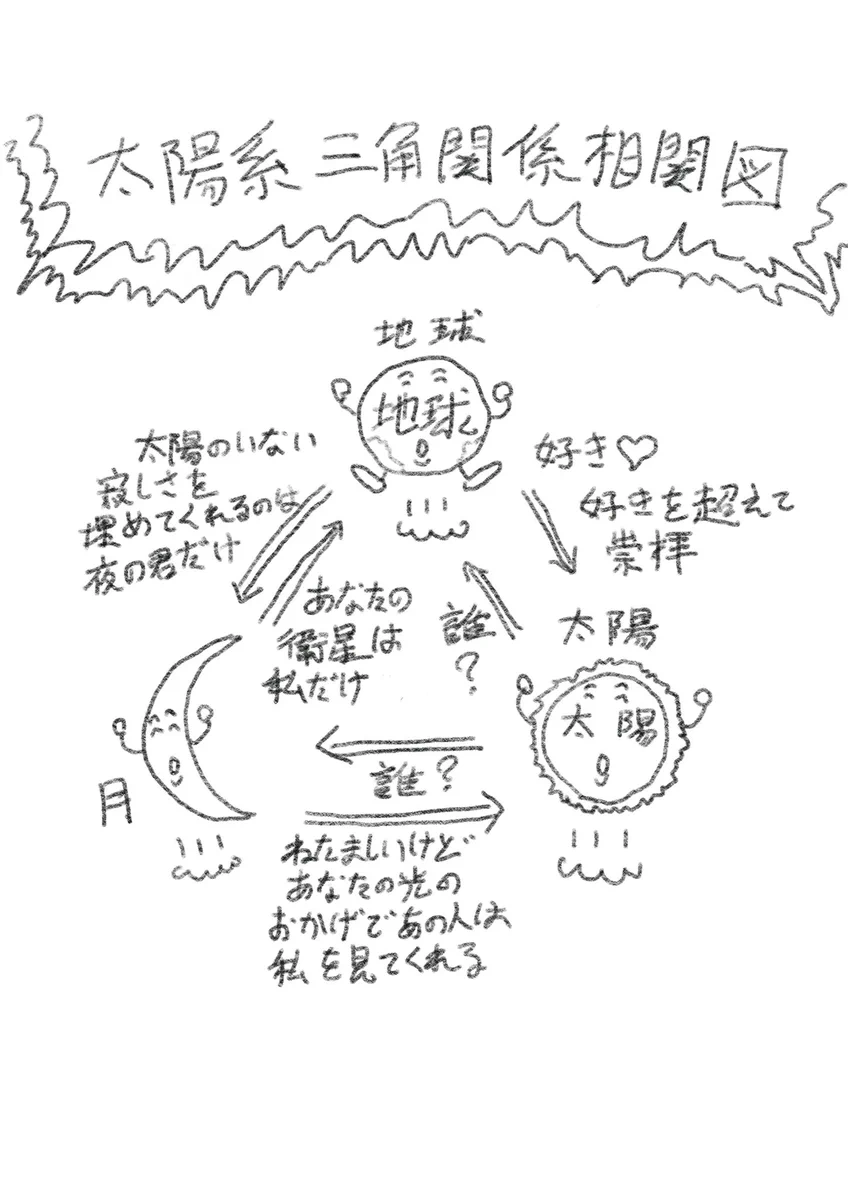 太陽系三角関係相関図
地球
地球
太陽のいない
寂しさを
埋めてくれるのは
夜の君だけ
好き♡
好きを超えて
崇拝
あなたの
衛星は
私だけ
誰
?
太陽
太陽
月
誰?
ねたましいけど
あなたの光の
おかげであの人は
私を見てくれる